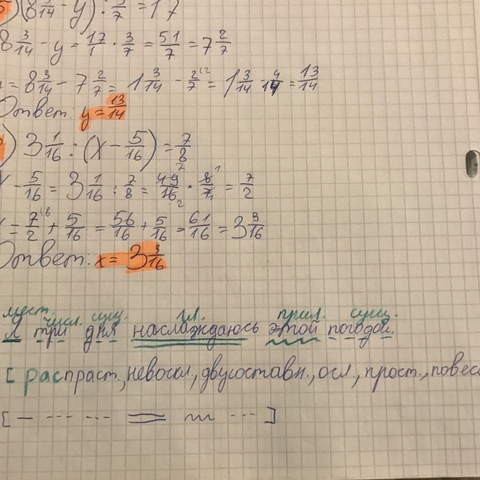 (8 3/14 - y) : 3/7 = 17
8 3/14 - y = 17/1 · 3/7 = 51/7 = 7 2/7
= 8 3/14 - 7 2/7 = 1 3/14 - 2/7 = 1 3/14 - 4/14 = 13/14
Ответ: y = 13/14
) 3 1/16 : (x - 5/16) = 7/8
x - 5/16 = 3 1/16 : 7/8 = 49/16 · 8/7 = 7/2
= 7/2 + 5/16 = 56/16 + 5/16 = 61/16 = 3 9/16
Ответ: x = 3 3/16
мест. числ. сущ. гл. прил. сущ.
Я три дня наслаждаюсь этой погодой.
[распраст., невоскл., двусоставн., осл., прост., повес
[ — --- --- == ~~ --- ]